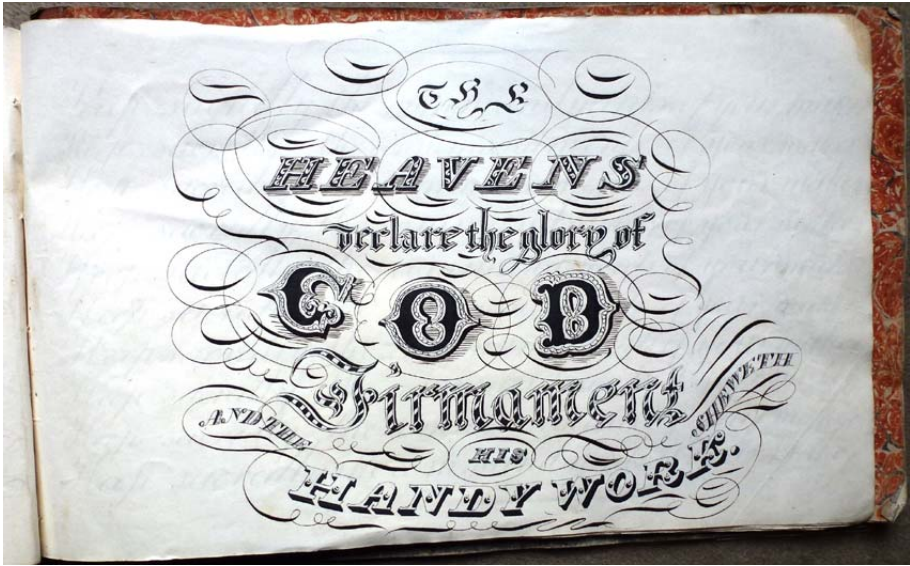 THE
HEAVENS
declare the glory of
GOD
AND THE Firmament SHEWETH
HIS
HANDY WORK.